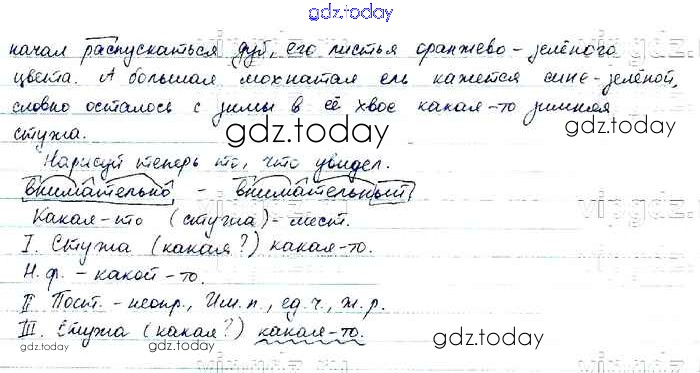 gdz.today
начал распускаться дуб, его листья оранжево-зелёного
цвета. А большая мохнатая ель кажется сине-зелёной,
словно осталось с зимы в её хвое какая-то зимняя
стужа.
gdz.today
Нарисуй теперь то, что увидел.
внимательно - внимательный
Какая-то (стужа) - мест.
I. Стужа (какая?) какая-то.
Н.ф. - какой-то.
II Пост. - неопр., Им.п., ед.ч., ж.р.
III. Стужа (какая?) какая-то.
gdz.today
gdz.today
gdz.today